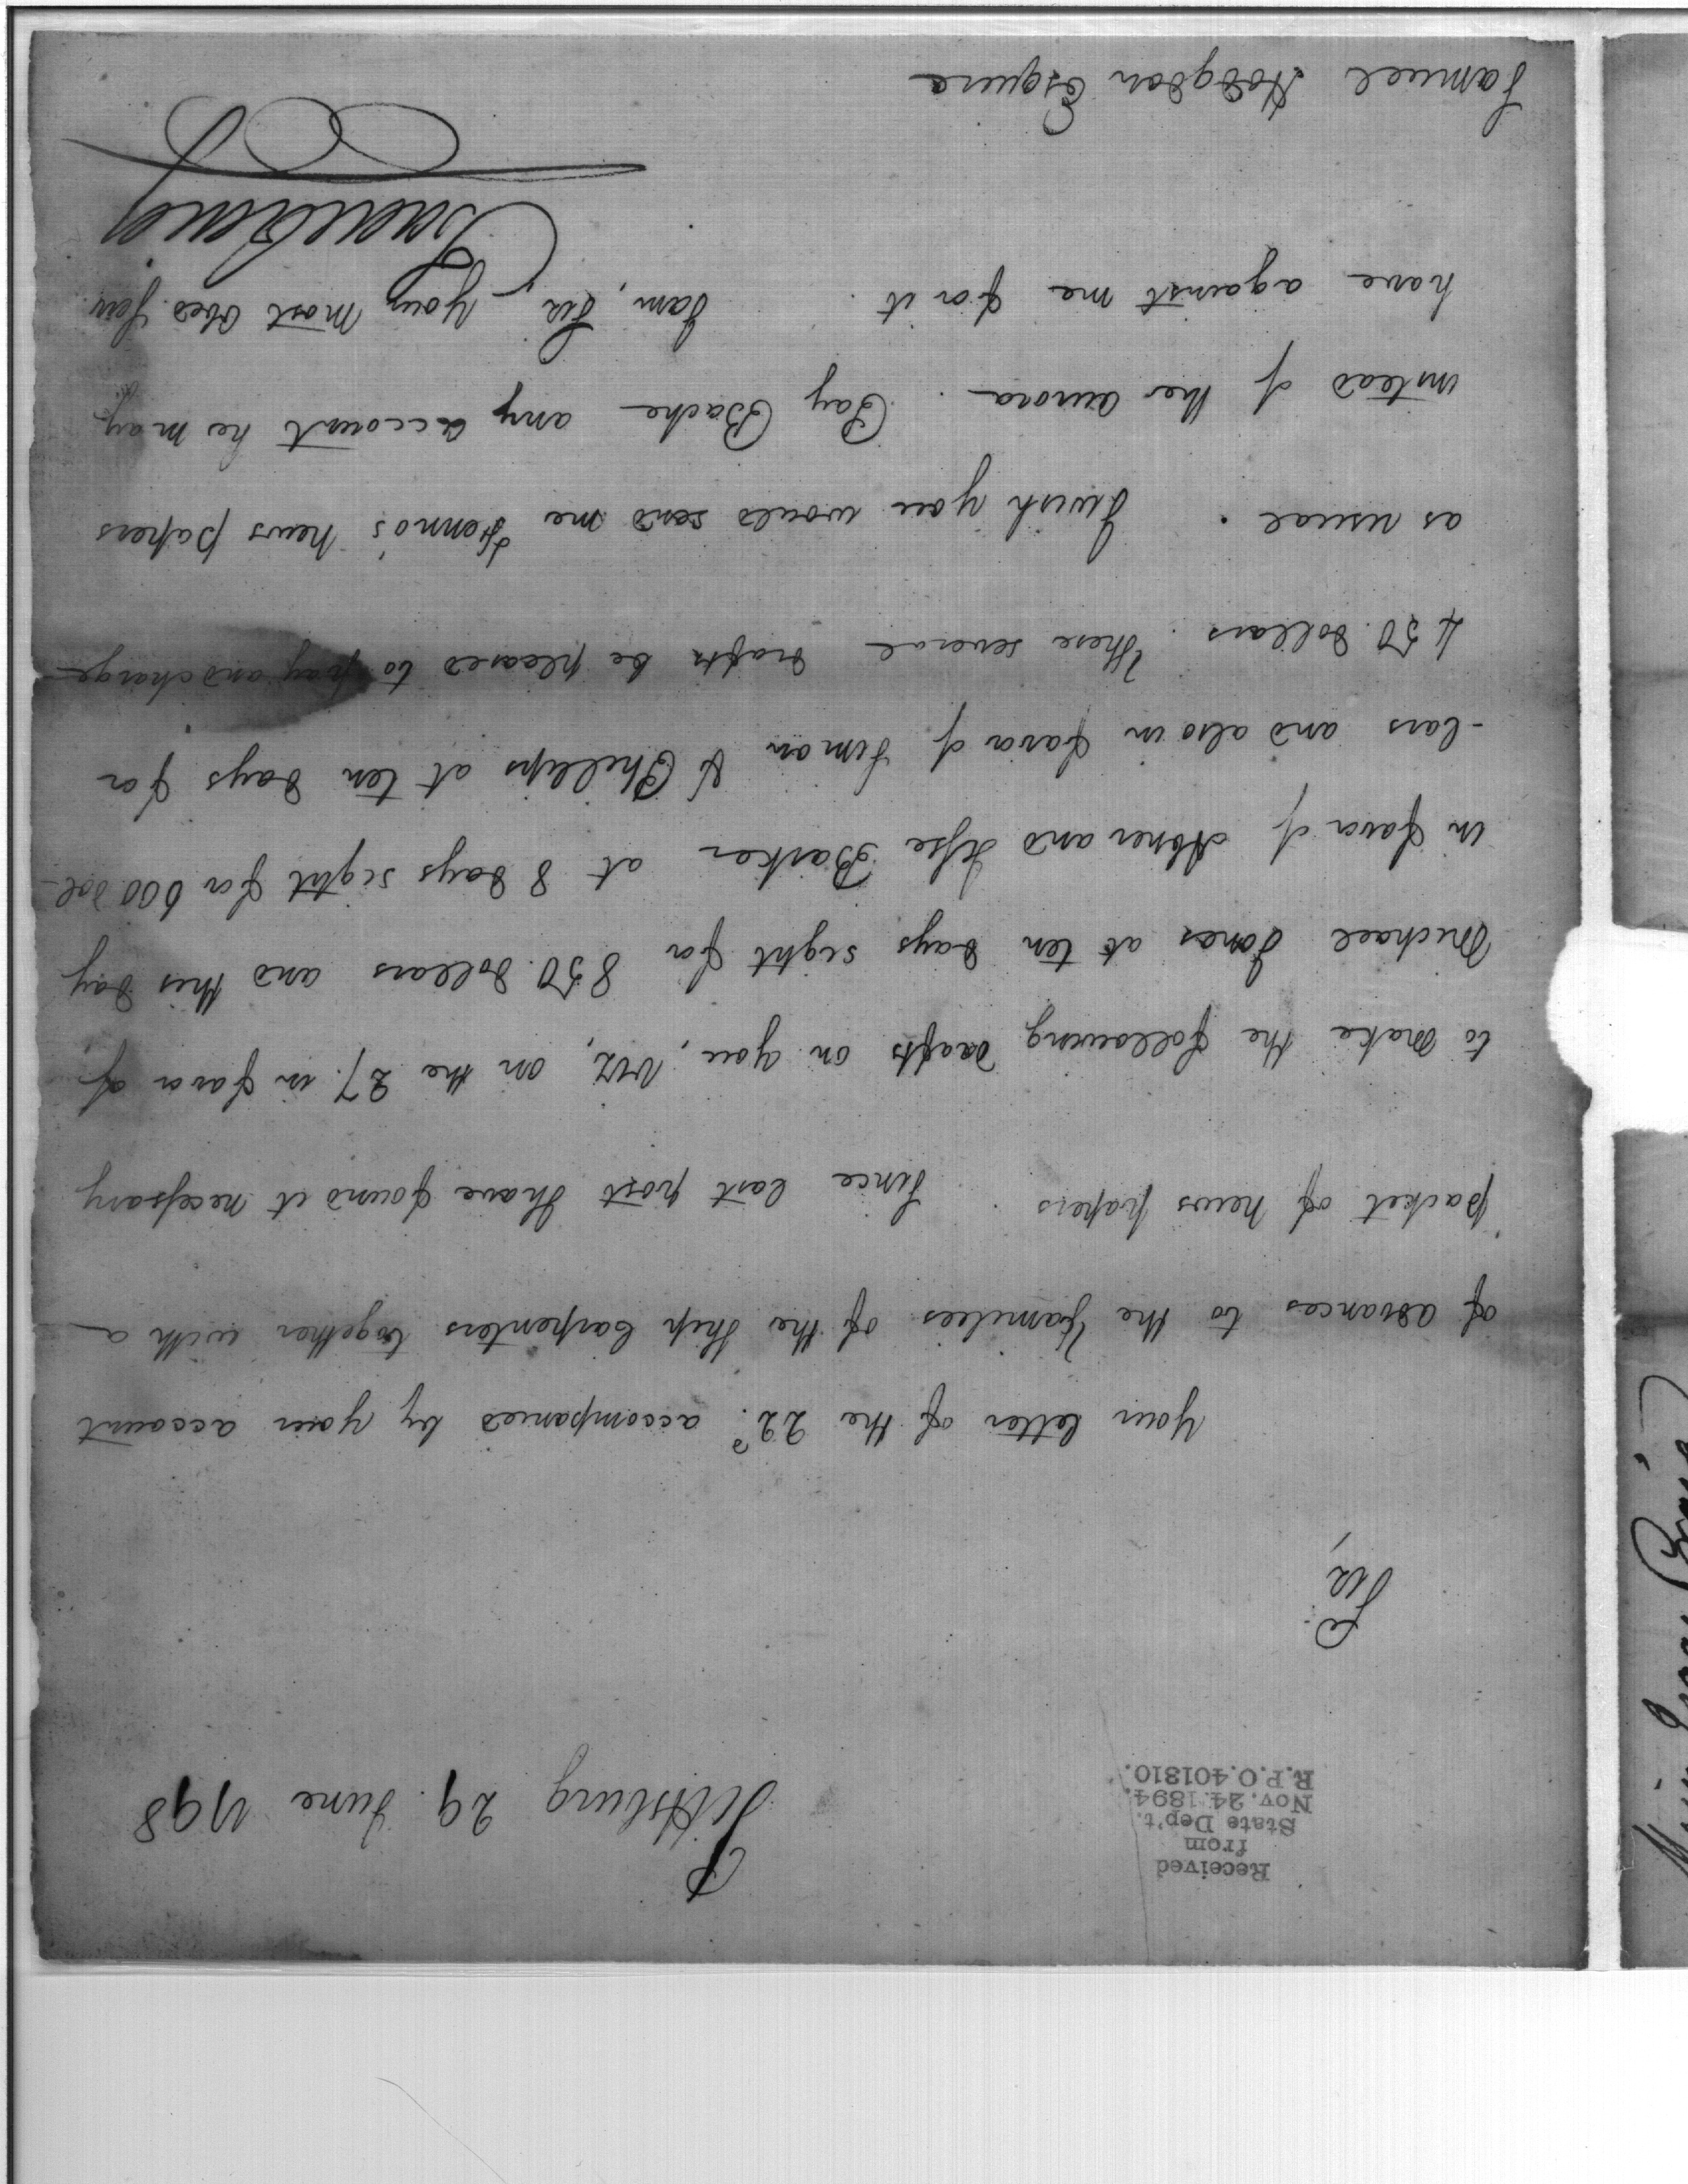 Received
from
State Dep't.
Nov. 24. 1894.
R.P.O. 401810.
Pittsburg 29. June 1798
Sir,
Your letter of the 22d. accompanied by your account
of advances to the families of the Ship Carpenters together with a
packet of news papers. Since last post I have found it necessary
to make the following drafts on you, viz, on the 27. in favor of
Michael Jones at ten days sight for 850. dollars and this day
in favor of Abner and Jesse Barker at 8 days sight for 600 dol-
-lars and also in favor of Simon & Phillips at ten days for
450. dollars. These several drafts be pleased to pay and charge
as usual. I wish you would send me Fenno's news papers
instead of the aurora. Pay Bache any account he may
have against me for it. I am, Sir, Your most Obed Ser
Isaac Craig
Samuel Hodgdon Esquire